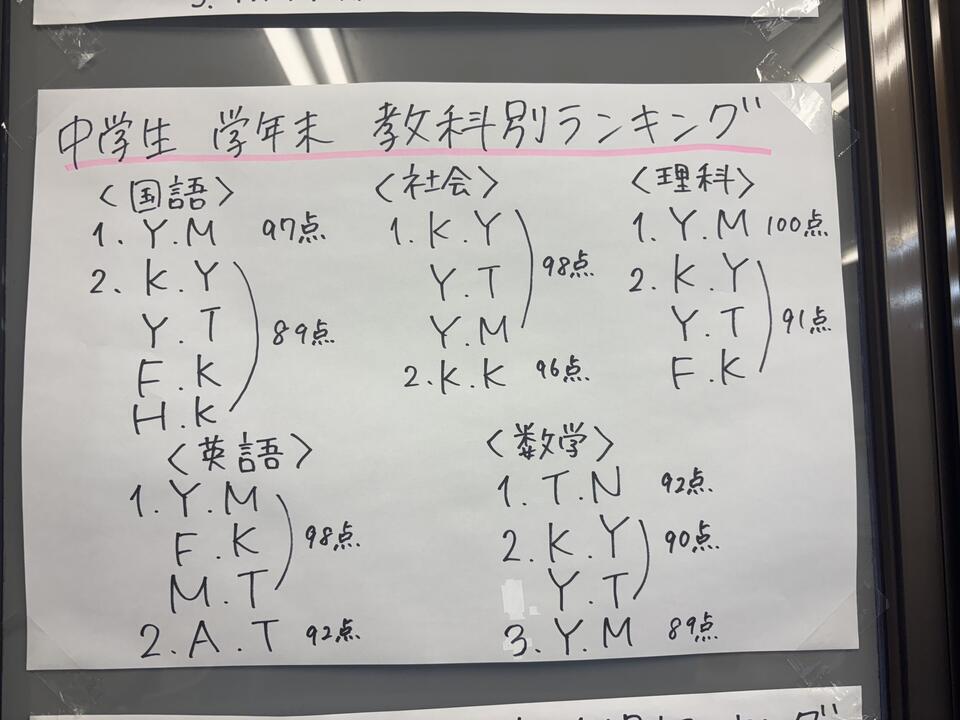 中学生 学年末 教科別ランキング
〈国語〉
1. Y.M 97点
2. K.Y
Y.T
F.K
H.K
89点
〈社会〉
1. K.Y
Y.T
Y.M
98点
2. K.K 96点
〈理科〉
1. Y.M 100点
2. K.Y
Y.T
F.K
91点
〈英語〉
1. Y.M
F.K
M.T
98点
2. A.T 92点
〈数学〉
1. T.N 92点
2. K.Y
Y.T
90点
3. Y.M 89点